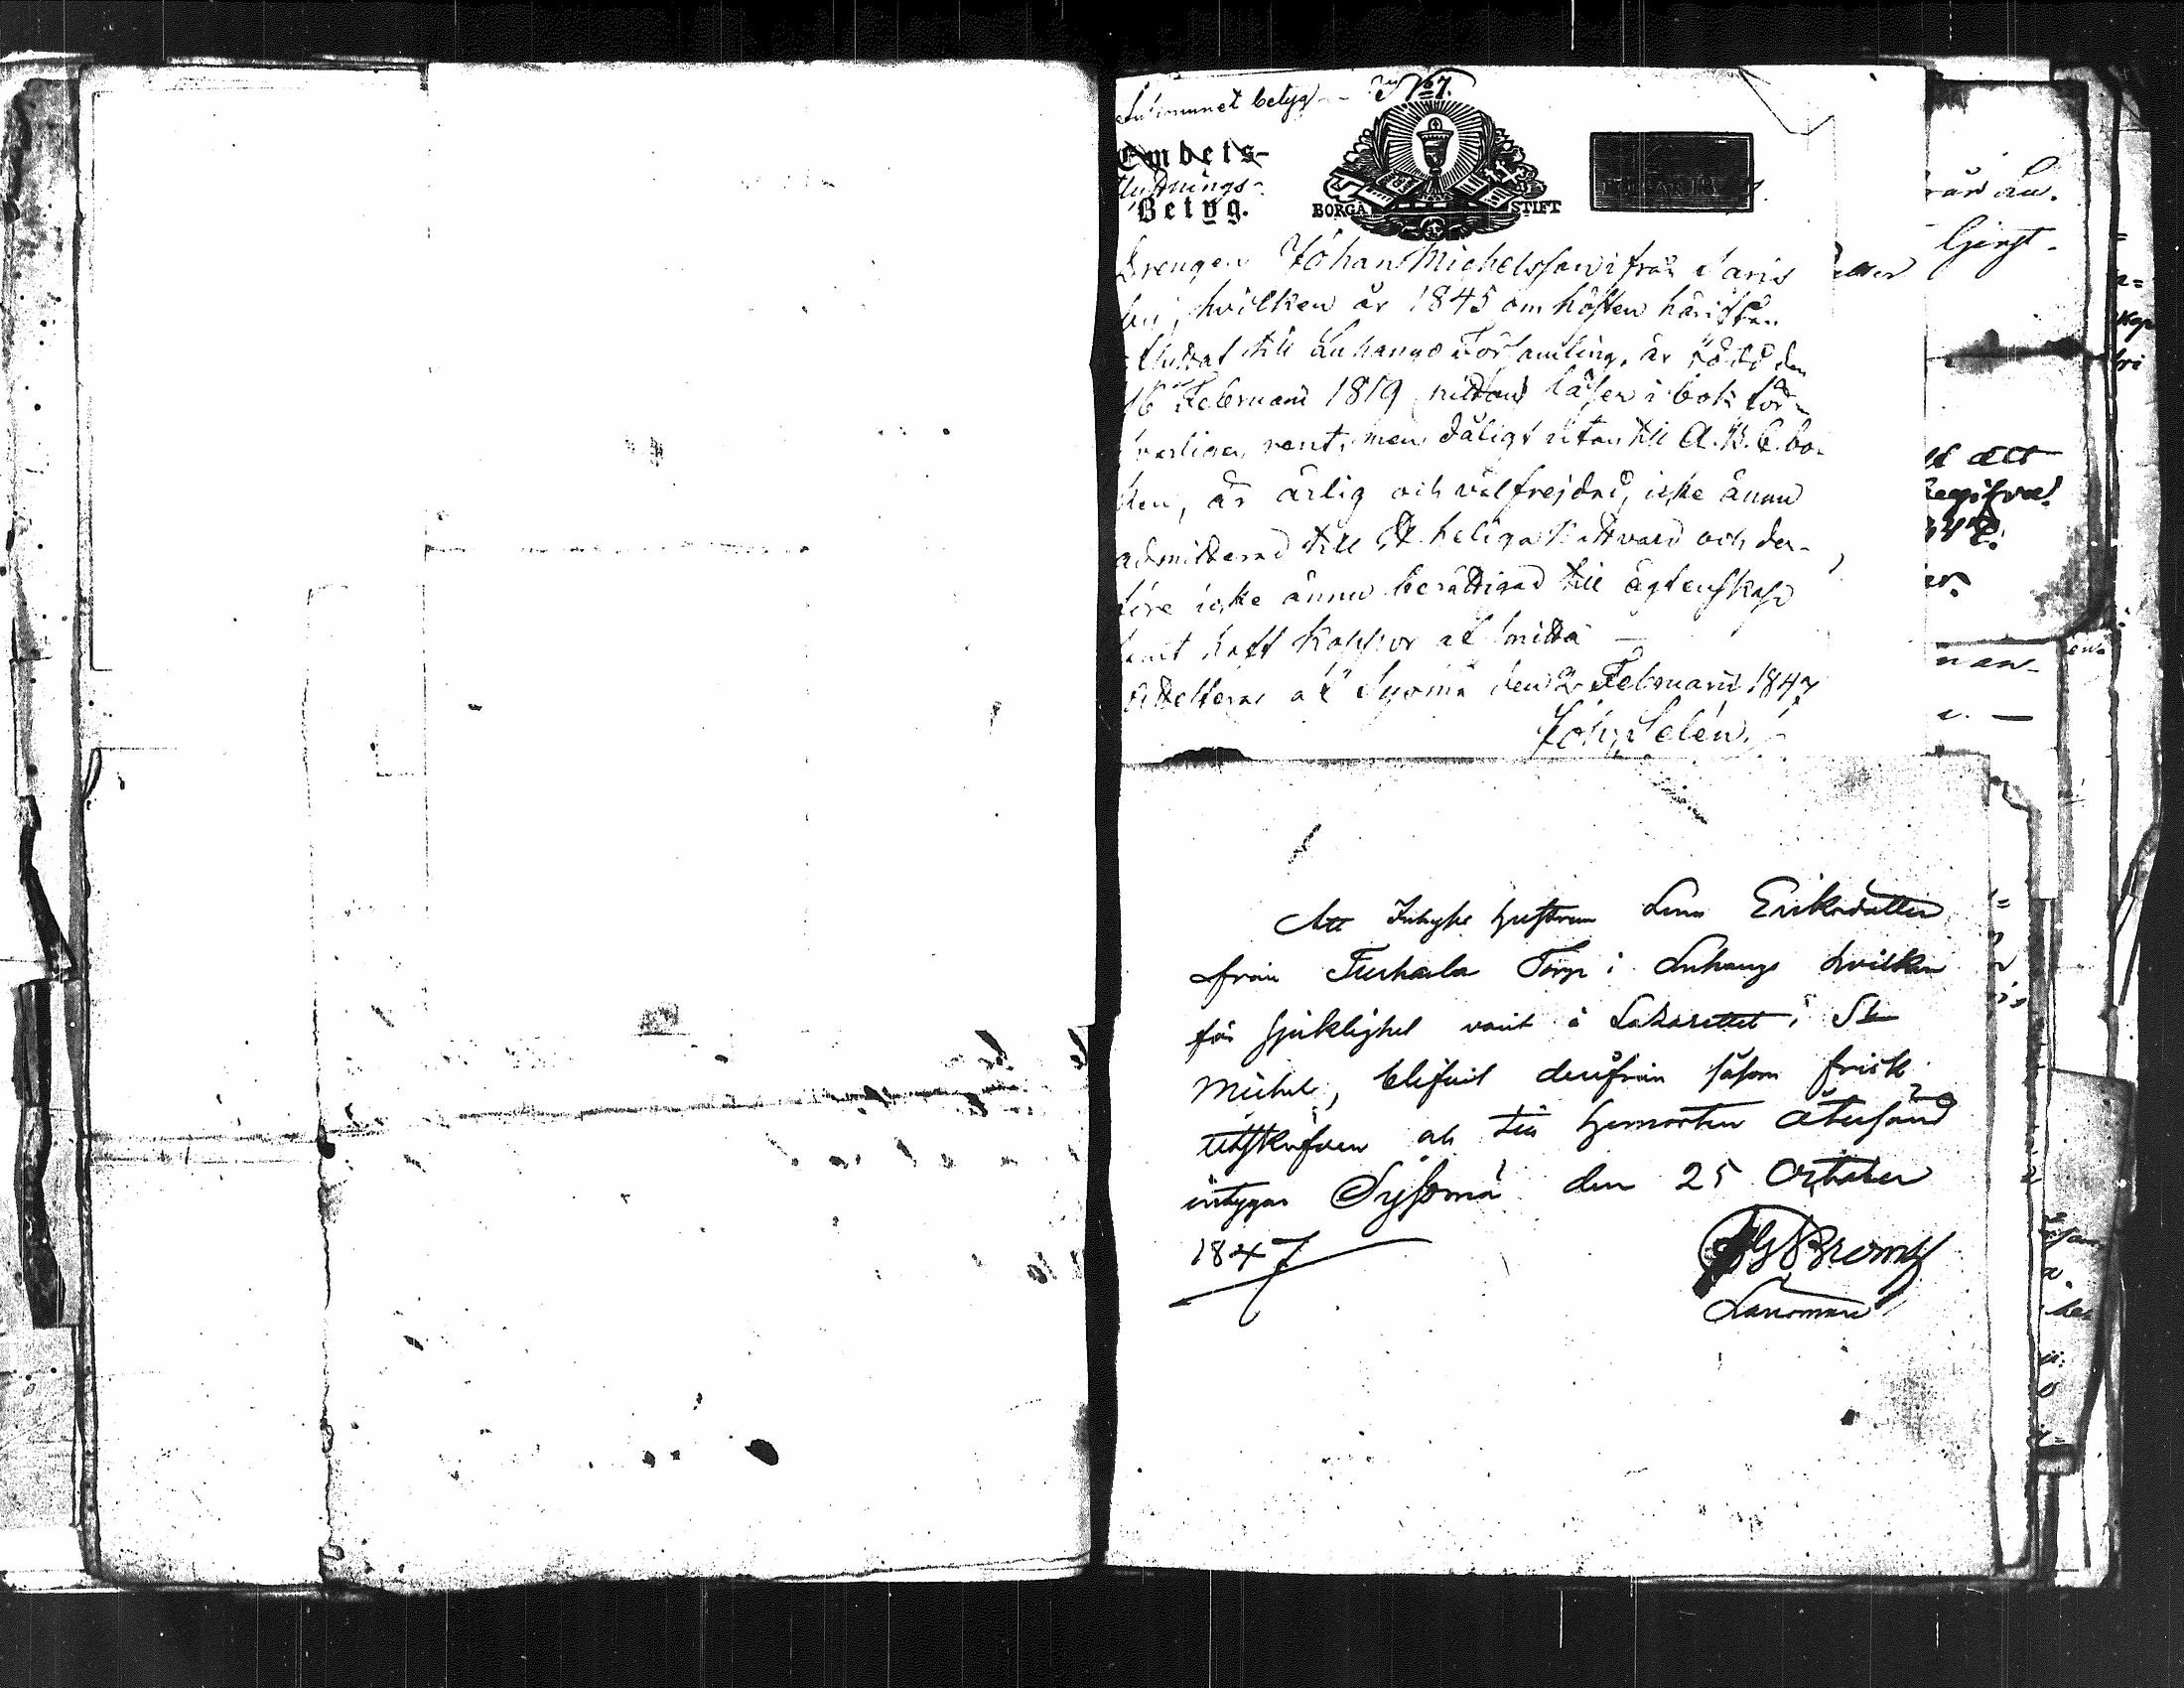 betyg N 67.
Embets-
flyttnings-
Betyg.
BORGÅ STIFT
Drengen Johan Michelsson ifrån Saris
by, hvilken år 1845 om hösten härifrån
flyttat till Luhango Församling, är född den
16 Februarii 1819 nittow läser i bok för-
svarligen rent, men dåligt utan till A.B.C.bo-
ken, är ärlig och välfrejdad, icke ännu
admitterad till H. heliga Nattvard och der-
före icke ännu berättigad till ägtenskap
samt haft koppor
af Sysmä den 2 Februarii 1847
Joh. Selén.
Att Inhyses hustrun Lena Eriksdotter
från Turhala Torp i Luhango hvilken
för sjuklighet varit å Lazarettet i St
Michel, blifvit derifrån såsom frisk
utskrifven och till hemorten återsänd
intygar Sysmä den 25 October
1847
Länsman